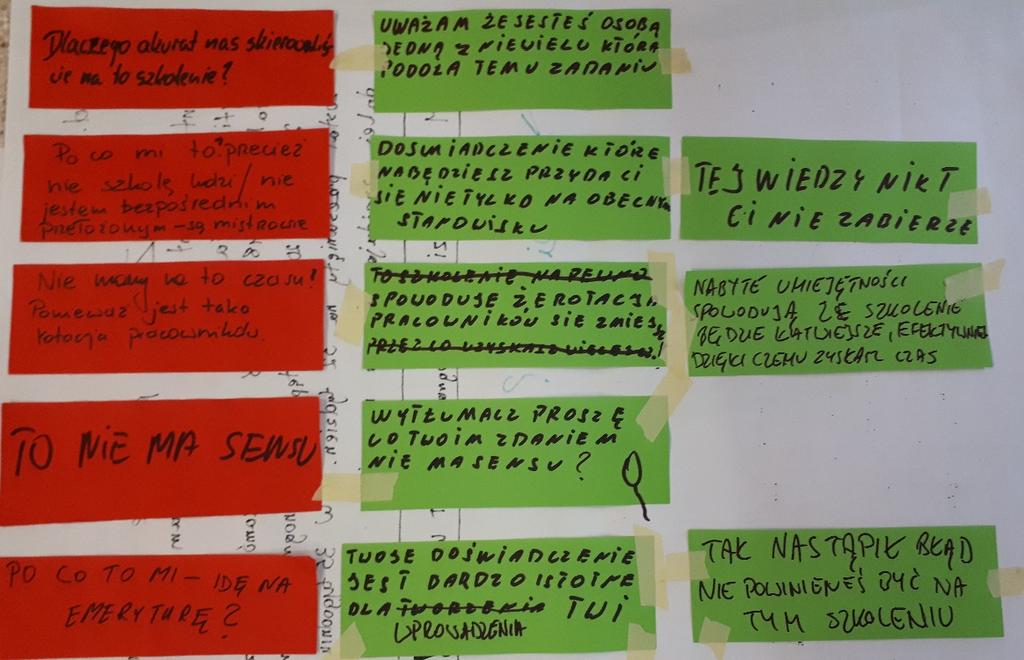 Dlaczego akurat nas skierowaliś
cie na to szkolenie?
UWAŻAM ŻE JESTEŚ OSOBĄ
JEDNĄ Z NIEWIELU KTÓRA
PODOŁA TEMU ZADANIU
Po co mi to? przecież
nie szkolę ludzi/nie
jestem bezpośrednim
przełożonym – są mistrzowie
DOŚWIADCZENIE KTÓRE
NABĘDZIESZ PRZYDA CI
SIE NIE TYLKO NA OBECNYM
STANOWISKU
TEJ WIEDZY NIKT
CI NIE ZABIERZE
Nie mamy na to czasu!
Ponieważ jest taka
rotacja pracowników.
TO SZKOLENIE NA PEWNO
SPOWODUJE ŻE ROTACJA
PRACOWNIKÓW SIE ZMIEJSZY
PRZEZ CO UZYSKASZ WIĘCEJ !
NABYTE UMIEJĘTNOŚCI
SPOWODUJĄ ŻE SZKOLENIE
BĘDZIE ŁATWIEJSZE, EFEKTYWNIEJ
DZIĘKI CZEMU ZYSKASZ CZAS
TO NIE MA SENSU
WYTŁUMACZ PROSZĘ
CO TWOIM ZDANIEM
NIE MA SENSU?
PO CO TO MI – IDĘ NA
EMERYTURĘ?
TWOJE DOŚWIADCZENIE
JEST BARDZO ISTOTNE
DLA TWORZENIA TWI
WPROWADZENIA
TAK NASTĄPIŁ BŁĄD
NIE POWINIENEŚ BYĆ NA
TYM SZKOLENIU